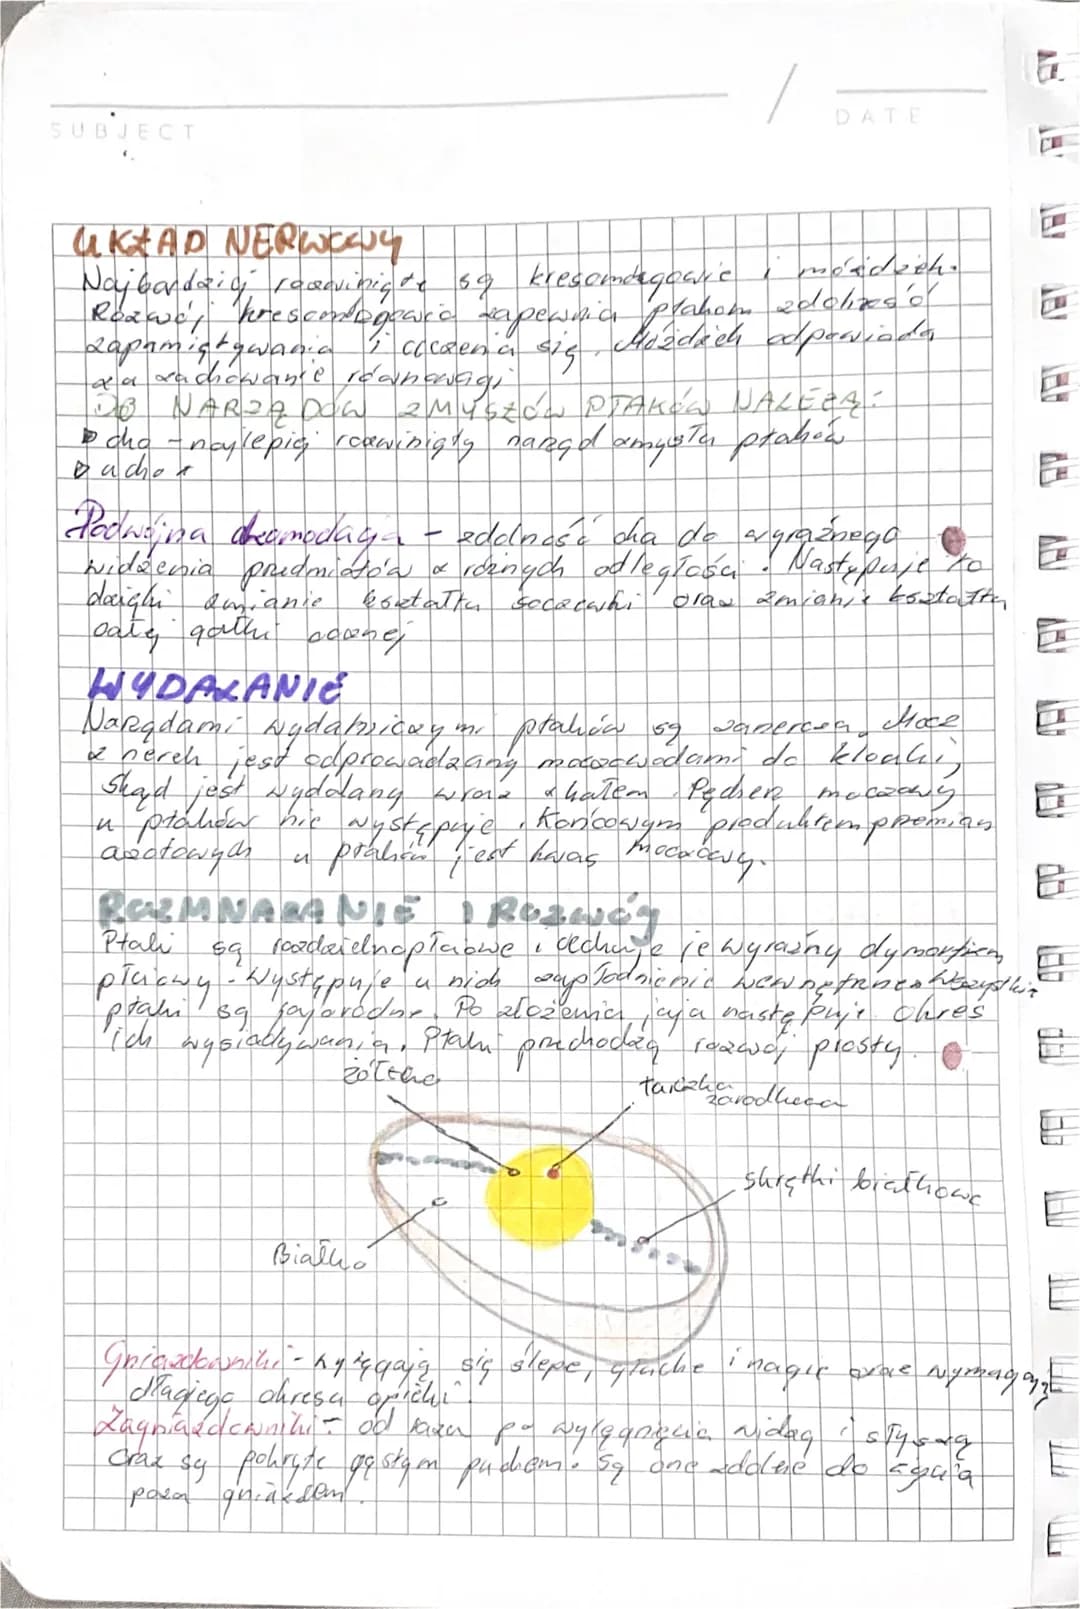 SUBJECT
DATE
UKŁAD NERWOWY
Najbardziej rozwinięte są kresomózgowie i móżdżek.
Rozwój kresomózgowia zapewnia ptakom zdolność
zapamiętywania i uczenia się. Móżdżek odpowiada
za zachowanie równowagi
DO NARZĄDÓW ZMYSŁÓW PTAKÓW NALEŻĄ:
oko - najlepiej rozwinięty narząd zmysłu ptaków
ucho
Podwójna akomodacja - zdolność oka do wyraźnego
widzenia przedmiotów z różnych odległości. Następuje to
dzięki zmianie kształtu soczewki oraz zmianie kształtu
całej gałki ocznej
WYDALANIE
Narządami wydalniczymi ptaków są zanercza. Mocz
z nerek jest odprowadzany moczowodami do kloaki,
skąd jest wydalany wraz z kałem. Pęcherz moczowy
u ptaków nie występuje. Końcowym produktem przemian
azotowych u ptaków jest kwas moczowy.
ROZMNAŻANIE I ROZWÓJ
Ptaki są rozdzielnopłciowe i cechuje je wyraźny dymorfizm
płciowy. Występuje u nich zapłodnienie wewnętrzne. Wszystkie
ptaki są jajorodne. Po złożeniu jaja następuje okres
ich wysiadywania. Ptaki przechodzą rozwój prosty.
żółtko
tarczka
zarodkowa
skrętki białkowe
Białko
Gniazdowniki - wylęgają się ślepe, głuche i nagie oraz wymagają
długiego okresu opieki.
Zagniazdowniki - od razu po wylęgnięciu widzą i słyszą
oraz są pokryte gęstym puchem. Są one zdolne do życia
poza gniazdem.